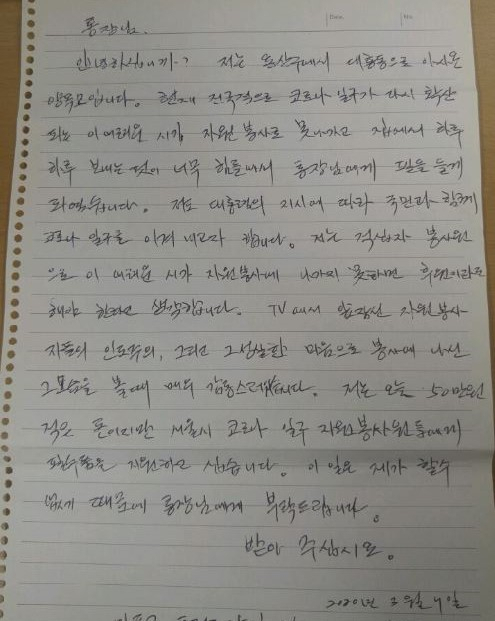 통장님.
안녕하십니까? 저는 용산구에서 대흥동으로 이사온
양옥모입니다. 현재 전국적으로 코로나 일구가 다시 확산
되는 이 어려운 시기 자원봉사로 못나가고 집에서 하루
하루 보내는 것이 너무 힘들어서 통장님에게 필을 들게
되였습니다. 저도 대통령의 지시에 따라 국민과 함께
코로나 일구를 이겨 내고자 합니다. 저는 적십자 봉사원
으로 이 어려운 시기 자원봉사에 나가지 못하면 후원이라도
해야 한다고 생각합니다. TV에서 일점 자원봉사
자들의 인도주의, 그리고 그 성실한 마음으로 봉사에 나선
그 모습을 볼때 매우 감동스러웠습니다. 저는 오늘 50만원
적은 돈이지만 서울시 코로나 일구 자원봉사원들에게
음료수를 지원하고 싶습니다. 이 일을 제가 할수
없기 때문에 통장님에게 부탁드립니다.
받아 주십시오.
2020년 3월 4일